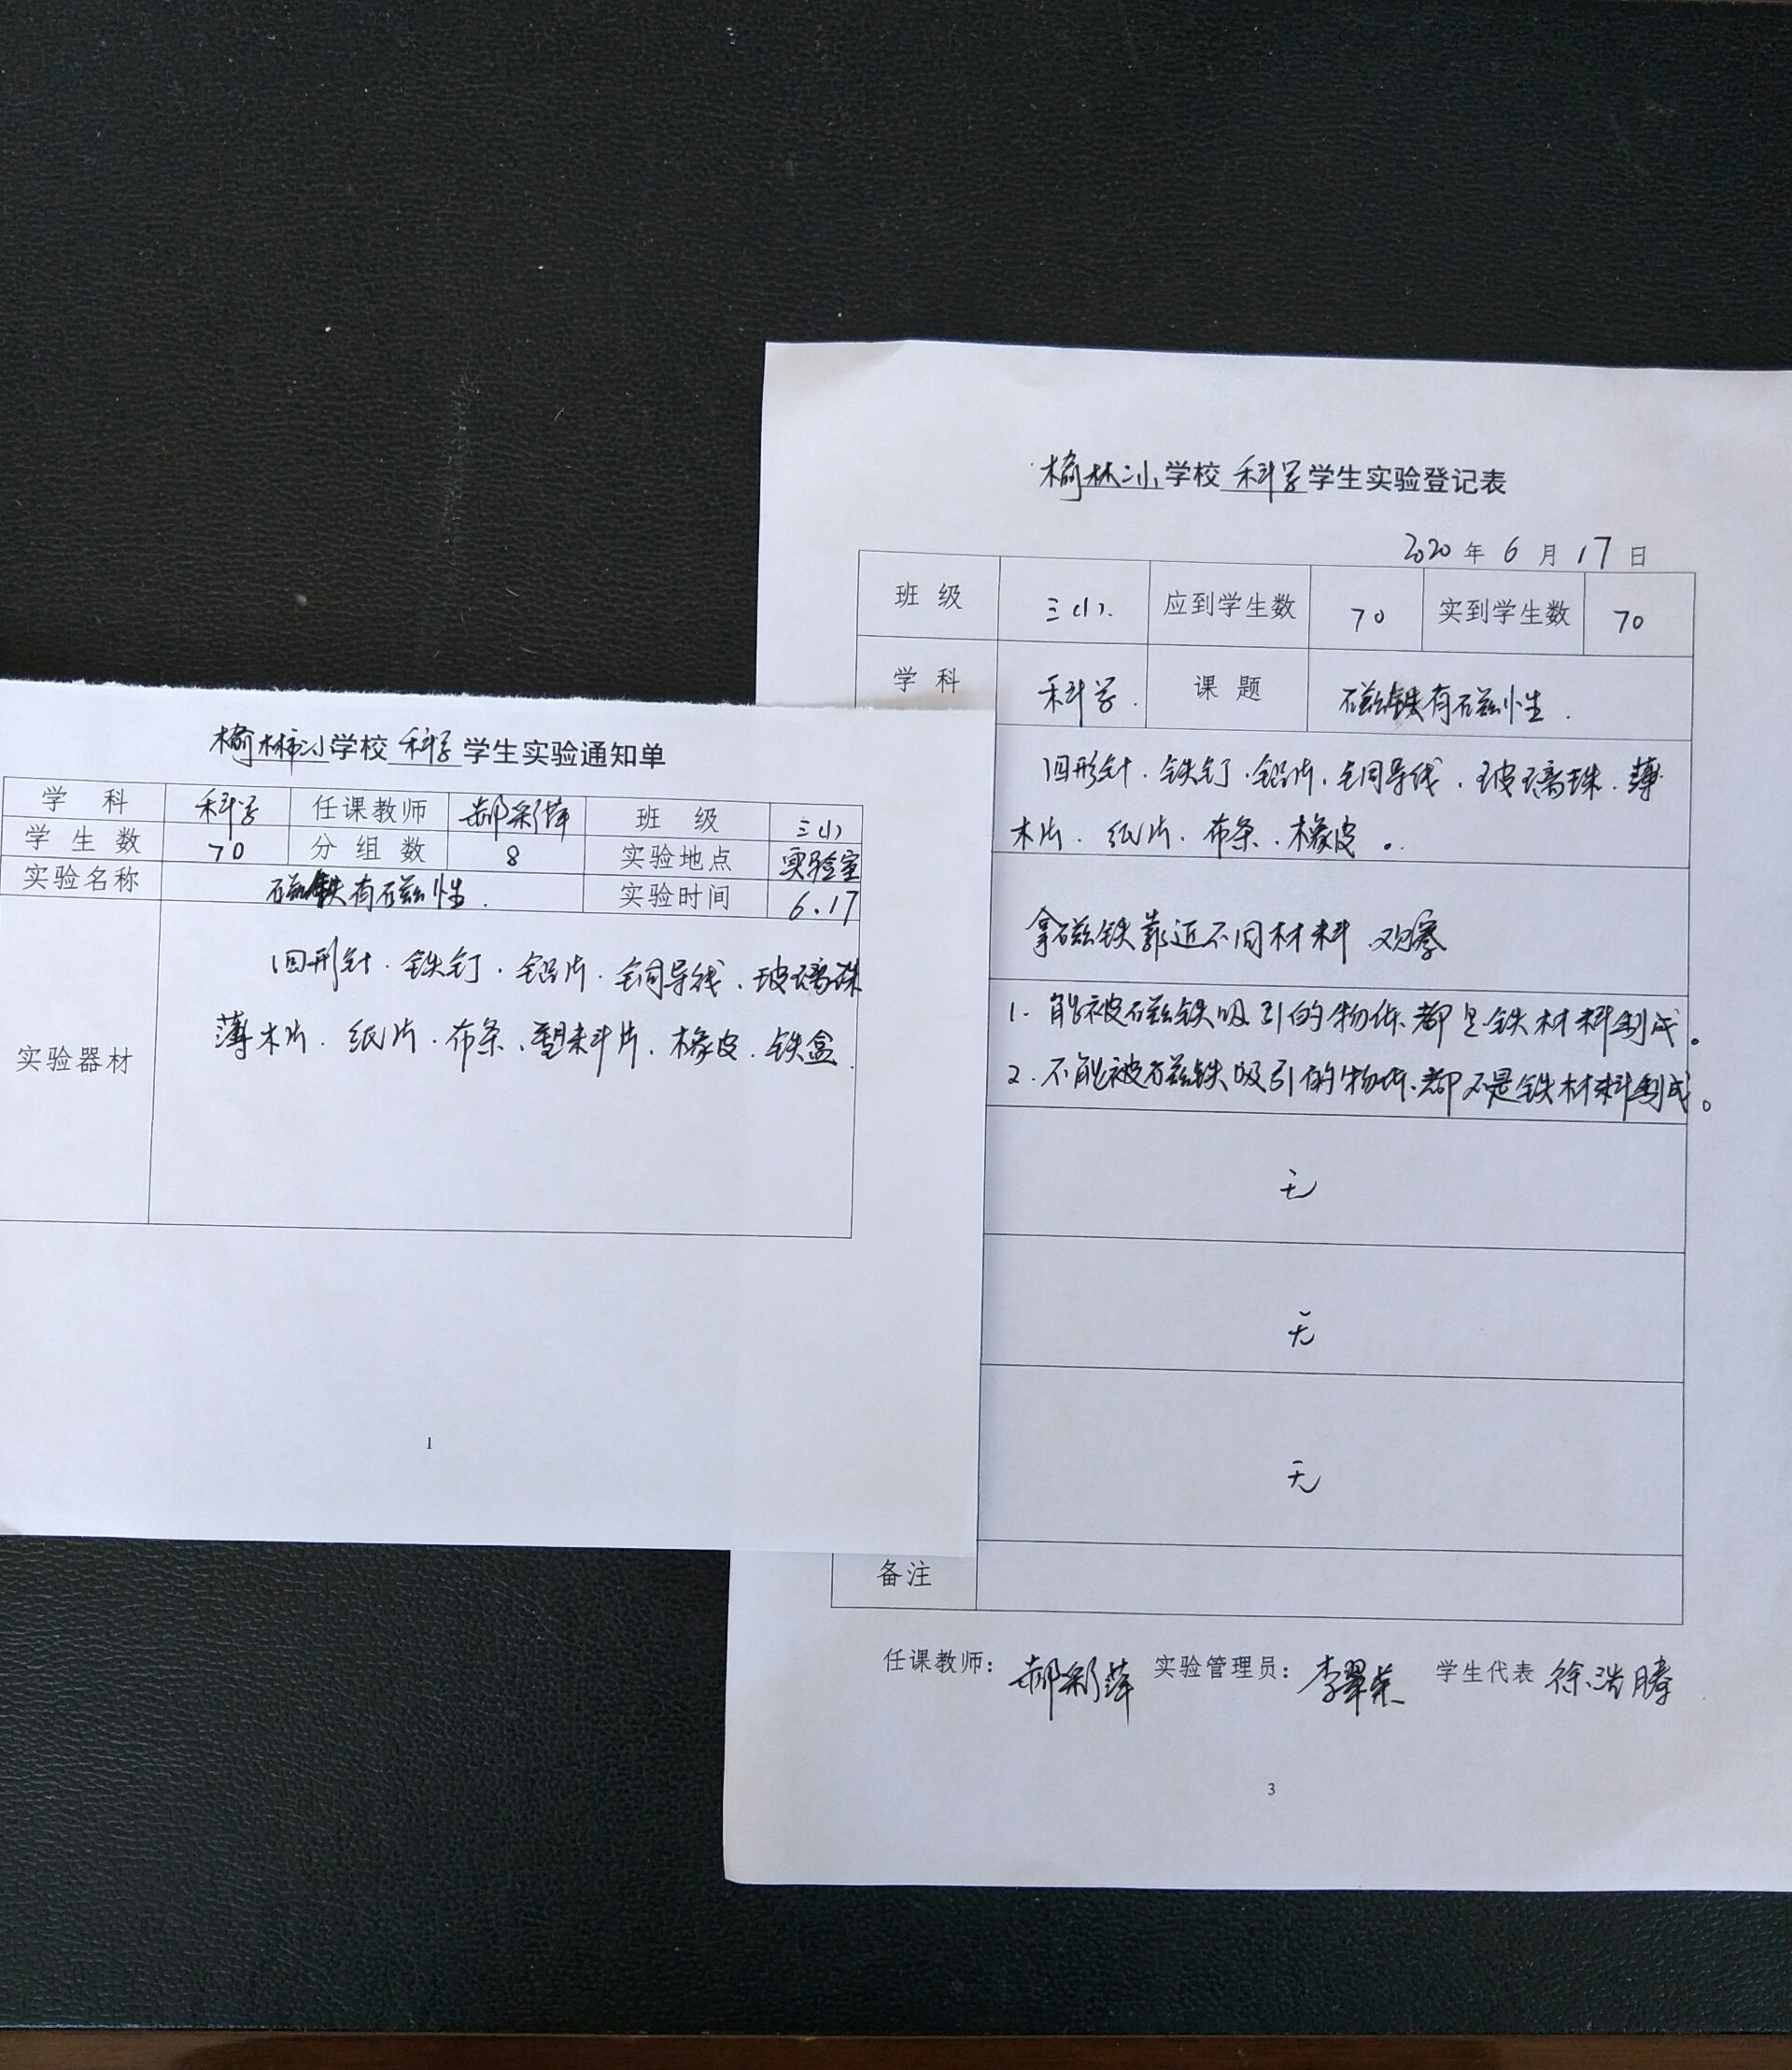 榆林二小学校 科学 学生实验通知单
学 科 科学 任课教师 郝彩萍 班 级 三(1)
学生数 70 分组数 8 实验地点 实验室
实验名称 磁铁有磁性. 实验时间 6.17
实验器材
回形针.铁钉.铝片.铜导线.玻璃珠
薄木片.纸片.布条.塑料片.橡皮.铁盒.
1
榆林二小学校 科学 学生实验登记表
2020 年 6 月 17 日
班 级 三(1). 应到学生数 70 实到学生数 70
学 科 科学. 课 题 磁铁有磁性.
回形针.铁钉.铝片.铜导线.玻璃珠.薄
木片.纸片.布条.橡皮。
拿磁铁靠近不同材料.观察
1.能被磁铁吸引的物体.都是铁材料制成。
2.不能被磁铁吸引的物体.都不是铁材料制成。
无
无
无
备注
任课教师: 郝彩萍 实验管理员: 李翠荣 学生代表 徐浩腾
3